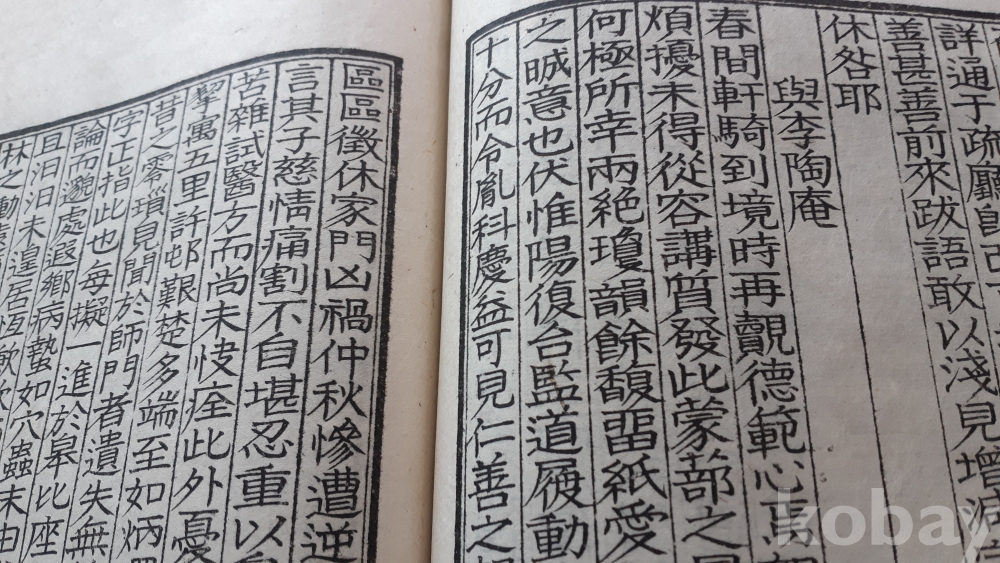 詳通于疏
善甚善前來跋語敢以淺見增
休咎耶
與李陶庵
春間軒騎到境時再覿德範心
煩擾未得從容講質發此蒙蔀之
何極所幸兩絶瓊韻餘馥留紙愛
之晠意也伏惟陽復台監道履動
十分而令胤科慶益可見仁善之
區區徵休家門凶禍仲秋慘遭逆
言其子慈情痛割不自堪忍重以
苦雜試醫方而尚未快痊此外憂
挈寓五里許邨艱楚多端至如炳
昔之零瑣見聞於師門者遺失無
字正指此也每擬一進於皐比座
論而邈處遐鄉病蟄如穴蟲末由
且汨汨未遑居恆歉
林之動
kobay